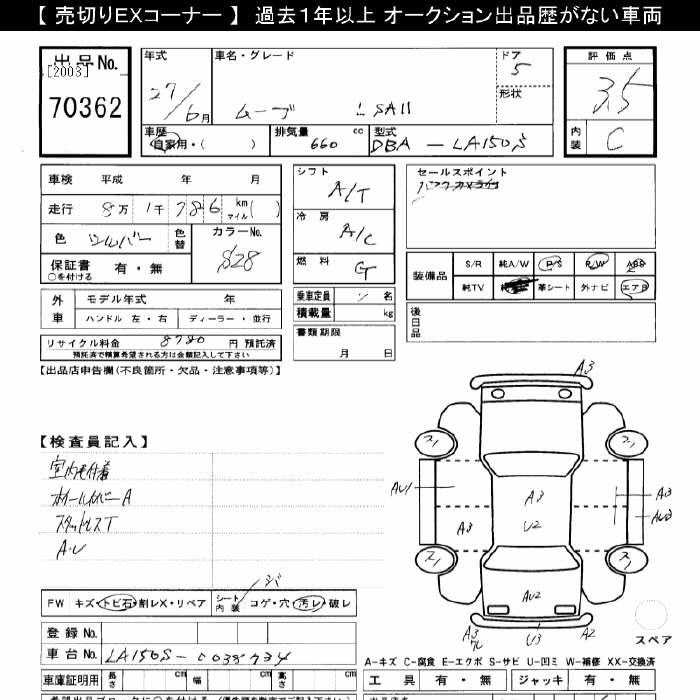 【 売切りEXコーナー 】 過去1年以上 オークション出品歴がない車両
出品No.
[2003]
70362
年式
27/6月
車名・グレード
ムーブ L SAII
ドア
5
形状
評価点
3.5
内装
C
車歴
自家用・( )
排気量
660 cc
型式
DBA - LA150S
車検 平成 年 月
走行 8万 1千 786 km マイル( )
色 シルバー
色替
カラーNo.
S28
保証書 有・無
○を付ける
外車
モデル年式 年
ハンドル 左・右
ディーラー・並行
リサイクル料金 8780 円 預託済
預託済で精算希望される方は金額記入して下さい
シフト
A/T
冷房
A/C
燃料
G
乗車定員 名
積載量 kg
書類期限
月 日
セールスポイント
装備品
S/R 純A/W P/S P/W ABS
純TV 革シート 外ナビ エアB
後日品
【出品店申告欄(不良箇所・欠品・注意事項等)】
【検査員記入】
ホイールカバーA
スタッドレスT
A・U
FW キズ・トビ石・割レX・リペア
シート内装 コゲ・穴・汚レ・破レ
登録No.
車台No. LA150S-0035734
車庫証明用 長さ cm 幅 cm 高さ cm
A3
AU1
A3
U2
A3
A3
AU3
AU2
A3
U3
A2
スペア
A-キズ C-腐食 E-エクボ S-サビ U-凹ミ W-補修 XX-交換済
工具 有・無 ジャッキ 有・無